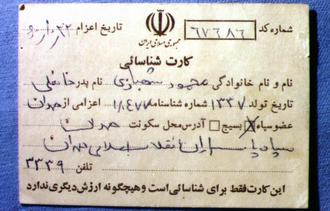 شماره کد ۶۷۶۸۶ جمهوری اسلامی ایران تاریخ اعزام
کارت شناسائی
نام و نام خانوادگی محمود شهبازی نام پدر
تاریخ تولد ۱۳۳۷ شماره شناسنامه ۱۸۴۷۷ اعزامی از همدان
عضو سپاه بسیج آدرس محل سکونت همدان
سپاه پاسداران انقلاب اسلامی همدان
تلفن ۳۳۳۹
این کارت فقط برای شناسائی است و هیچگونه ارزش دیگری ندارد